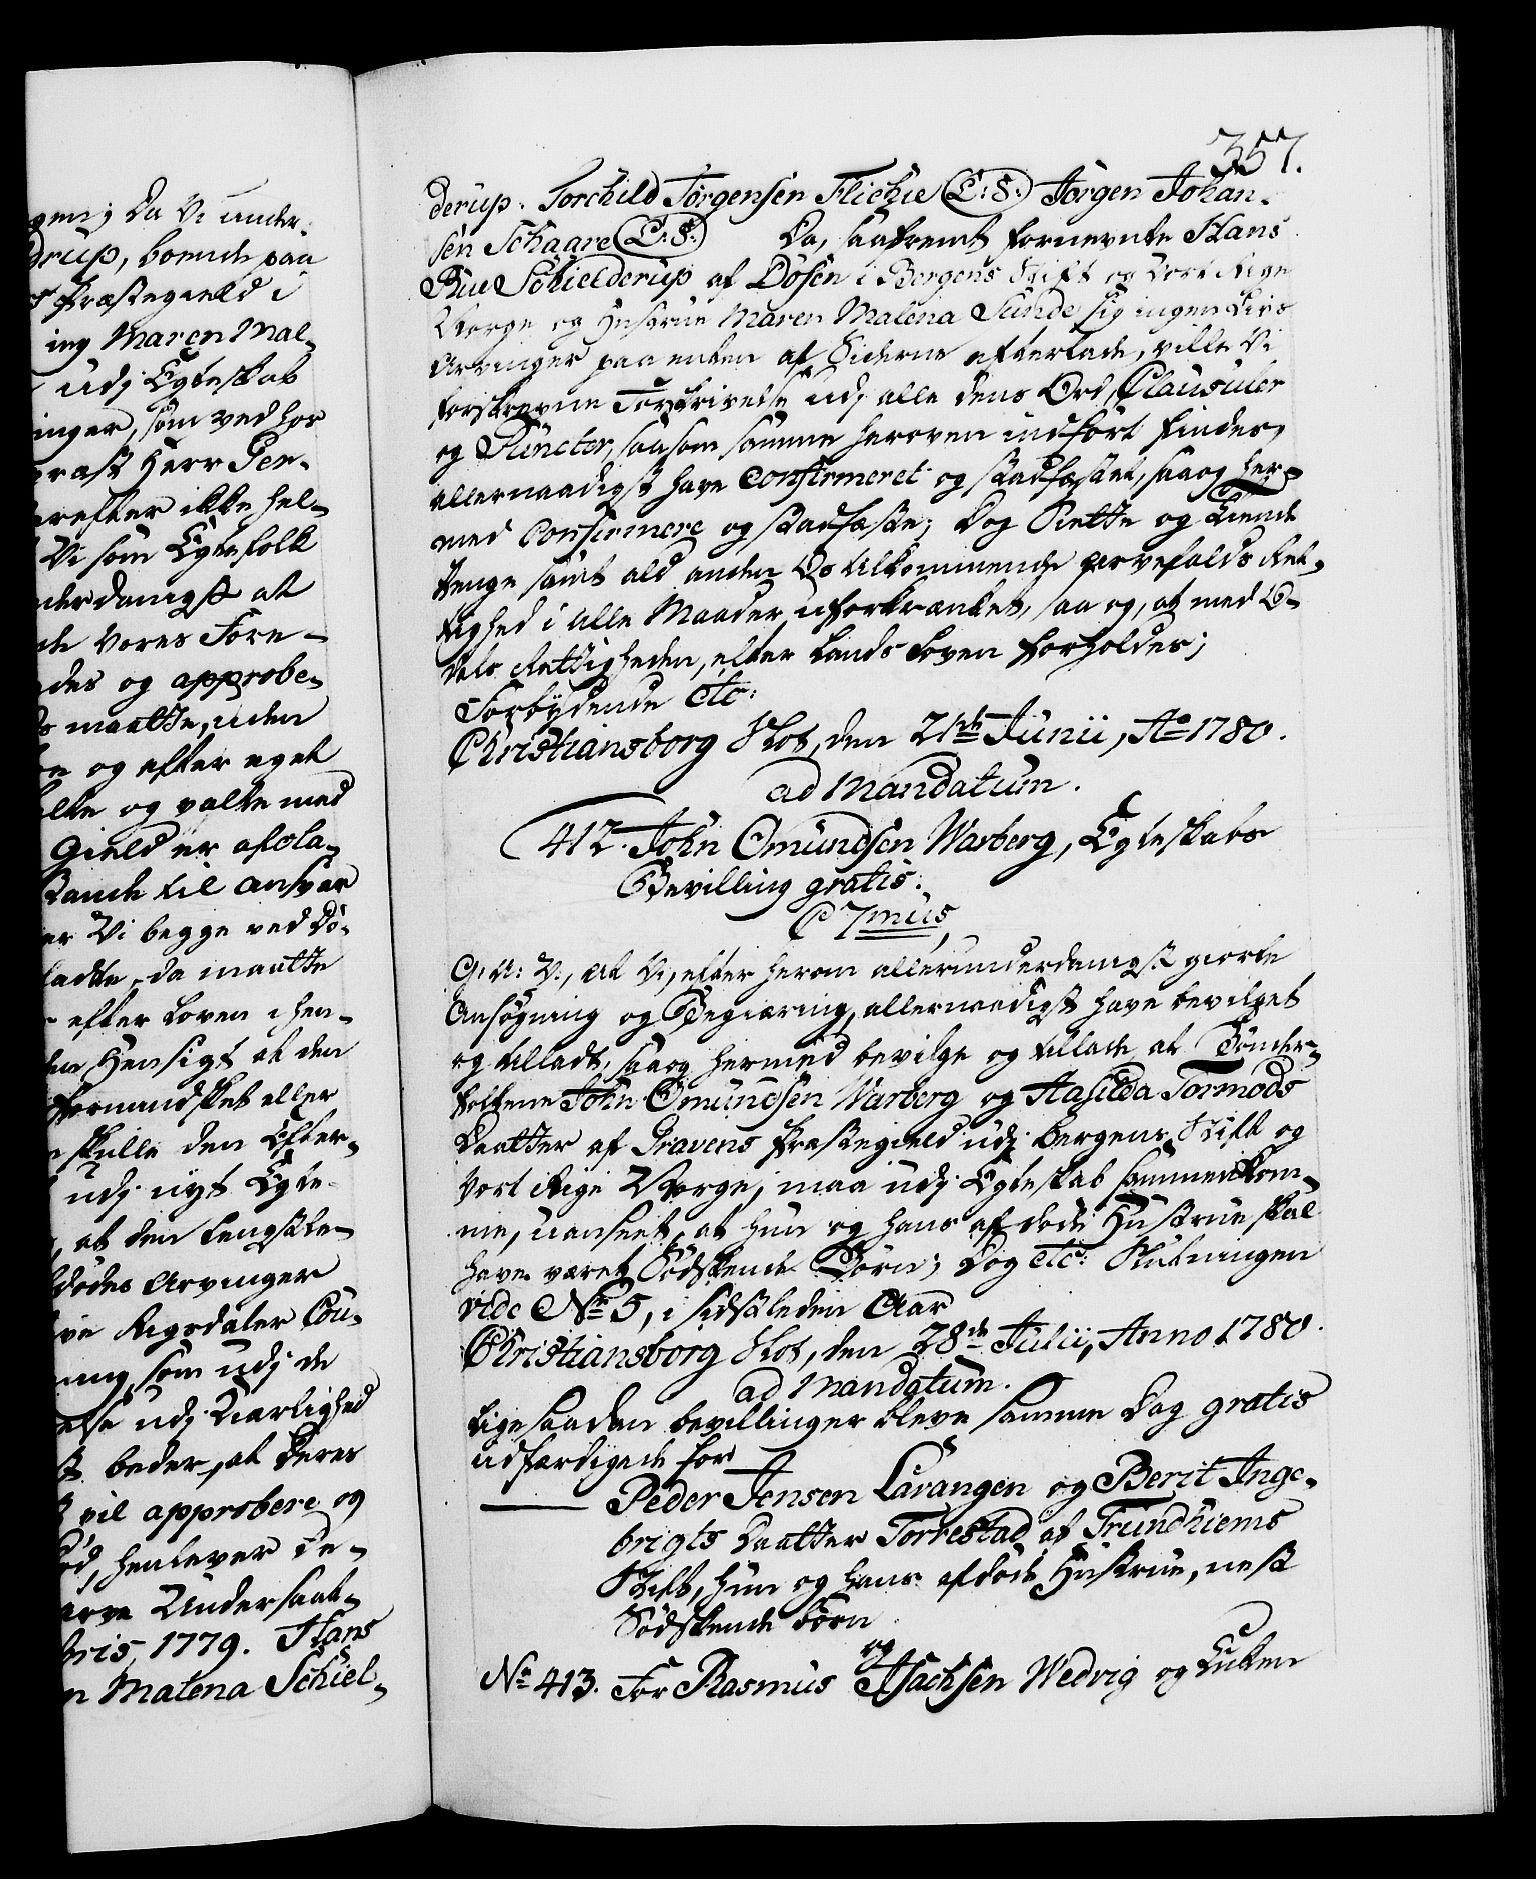 gen; Da Vi under-
drup, boende paa
Præstegield i
ing Maren Mal-
udj Egteskab
inger, som ved hos
præst Herr Per-
erefter ikke hel-
Vi som Egtefolk
nderdanigst at
de vores Fore-
edes og approbe-
maatte, uden
og efter eget
alte og valte med
Gield er afdla-
stande til ansvar
er Vi begge ved Dø-
ladte, da maatte
efter Loven i hen-
den Hensigt at den
formindsket eller
skulle den Efter-
udj nyt Egte-
at den Længstle-
døde Arvinger
Rigsdaler Cou-
ning, som udj de
else udj Kierlighed
beder, at Deres
vil approbere og
Død, henlever de-
arve Undersaat-
bris, 1779. Hans
n Malena Schiel-
357.
derup. Torchild Jørgensen Flichie (L: S:) Jørgen Johan-
sen Schaare (L: S:) Da, saafremt fornevnte Hans
Bue Schielderup af Døsen i Bergens Stift og Vort Rige
Norge og Hustrue Maren Malena Sunde sig ingen Livs
Arvinger paa enten af Siderne efterlade, ville Vi
forskrevne Forskrivelse udj alle dens Ord, Clausuler
og Puncter, saasom samme heroven indført findes,
allernaadigst have Confirmeret og stadfæstet, saa og her-
med Confirmere og stadfæste; Dog Siette og Tiende
Penge samt ald anden Os tilkommende Arvefalds Ret-
tighed i alle Maader uforkrænket, saa og, at med O-
dels Rettigheden, efter Lands Loven forholdes;
Forbydende etc:
Christiansborg Slot, den 21de Junii, Ao 1780.
ad Mandatum.
412. John Omundsen Warberg, Egteskabs
Bevilling gratis.
C 7mus,
G: A: V:, at Vi, efter herom allerunderdanigst giorte
Ansøgning og Begiæring, allernaadigst have bevilget
og tilladt, saa og hermed bevilge og tillade, at Tønder-
folkene John Omundsen Warberg og Aasilda Tormods
Daatter af Gravens Præstegield udj Bergens Stift og
Vort Rige Norge, maa udj Egteskab sammenkom-
me, uanseet, at hun og hans afdøde Hustrue skal
have været Sødskende Børn; Dog etc: Slutningen
vide No 5, i sidstleden Aar
Christiansborg Slot, den 28de Julii, Anno 1780.
ad Mandatum.
Lige saadan bevillinger bleve samme Dag gratis
udfærdigede for
Peder Jensen Lavangen og Berit Inge-
brigts Daatter Torrestad af Trundhiems
Stift, hun og hans afdøde Hustrue, nest
Sødskende Børn.
No 413. For Rasmus Isachsen Wedvig og Enken